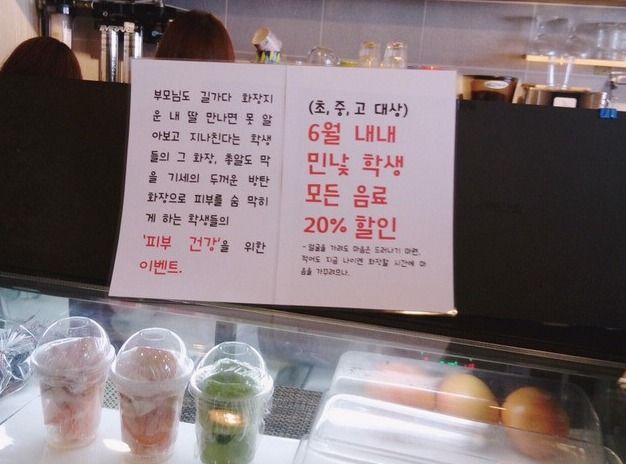 부모님도 길가다 화장지
운 내 딸 만나면 못 알
아보고 지나친다는 학생
들의 그 화장, 총알도 막
을 기세의 두꺼운 방탄
화장으로 피부를 숨 막히
게 하는 학생들의
'피부 건강'을 위한
이벤트.
(초, 중, 고 대상)
6월 내내
민낯 학생
모든 음료
20% 할인
- 얼굴을 가려도 마음은 드러나기 마련.
적어도 지금 나이엔 화장할 시간에 마
음을 가꾸려므나.